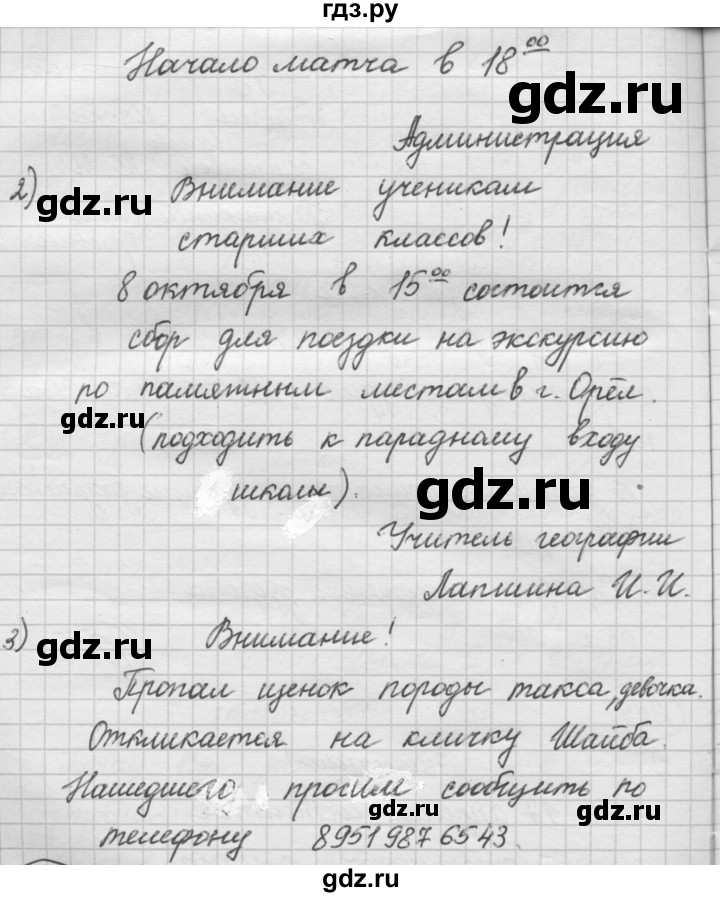 гдз.ру
Начало матча в 18 00
gdz.ru
Администрация
2) Внимание ученикам
gdz.ru
старших классов!
8 октября в 15 00 состоится
сбор для поездки на экскурсию
по памятным местам в г. Орёл.
gdz.ru
(подходить к парадному входу
школы).
gdz.ru
Учитель географии
Лапшина И. И.
3) Внимание!
gdz.ru
Пропал щенок породы такса, девочка.
Откликается на кличку Шайба.
Нашедшего просим сообщить по
gdz.ru
телефону 89519876543.
gdz.ru
gdz.ru